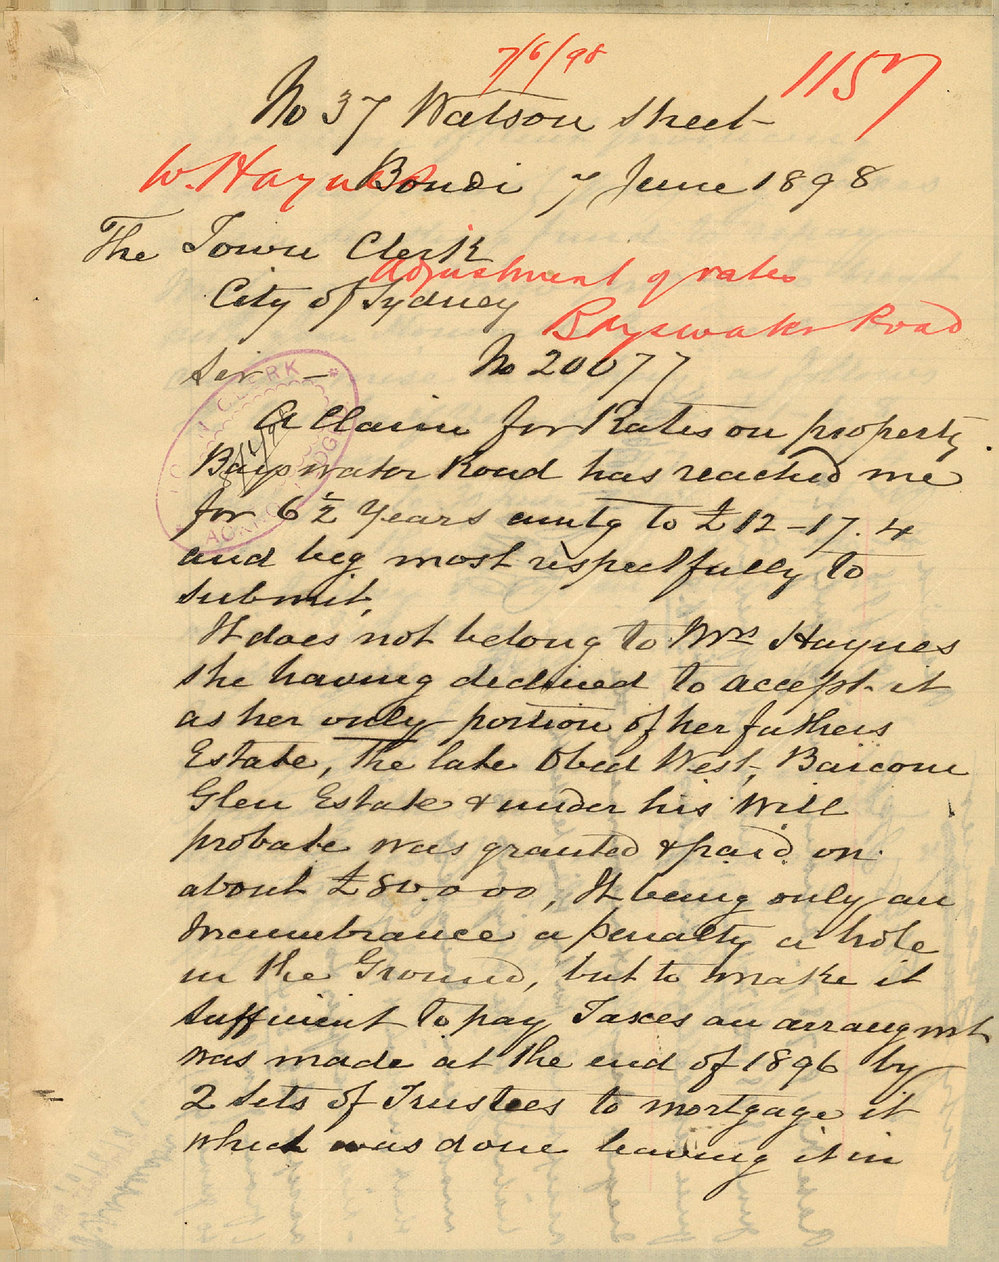 7/6/98
1157
No 37 Watson Street
W. Haynes
Bondi 7 June 1898
The Town Clerk
Adjustment of rates
City of Sydney
Bayswater Road
Sir — No 20077
TOWN CLERK
8/6/98
ACKNOWLEDGED
A Claim for Rates on property
Bayswater Road has reached me
for 6½ Years amtg to £12-17.4
and beg most respectfully to
submit,
It does not belong to Mrs Haynes
she having declined to accept it
as her only portion of her fathers
Estate, The late Obed West, Barcom
Glen Estate & under his Will
probate was granted & paid on
about £80.000, It being only an
Incumbrance a penalty a hole
in the Ground, but to make it
sufficient to pay Taxes an arrangmt
was made at the end of 1896 by
2 Sets of Trustees to mortgage it
which was done leaving it in